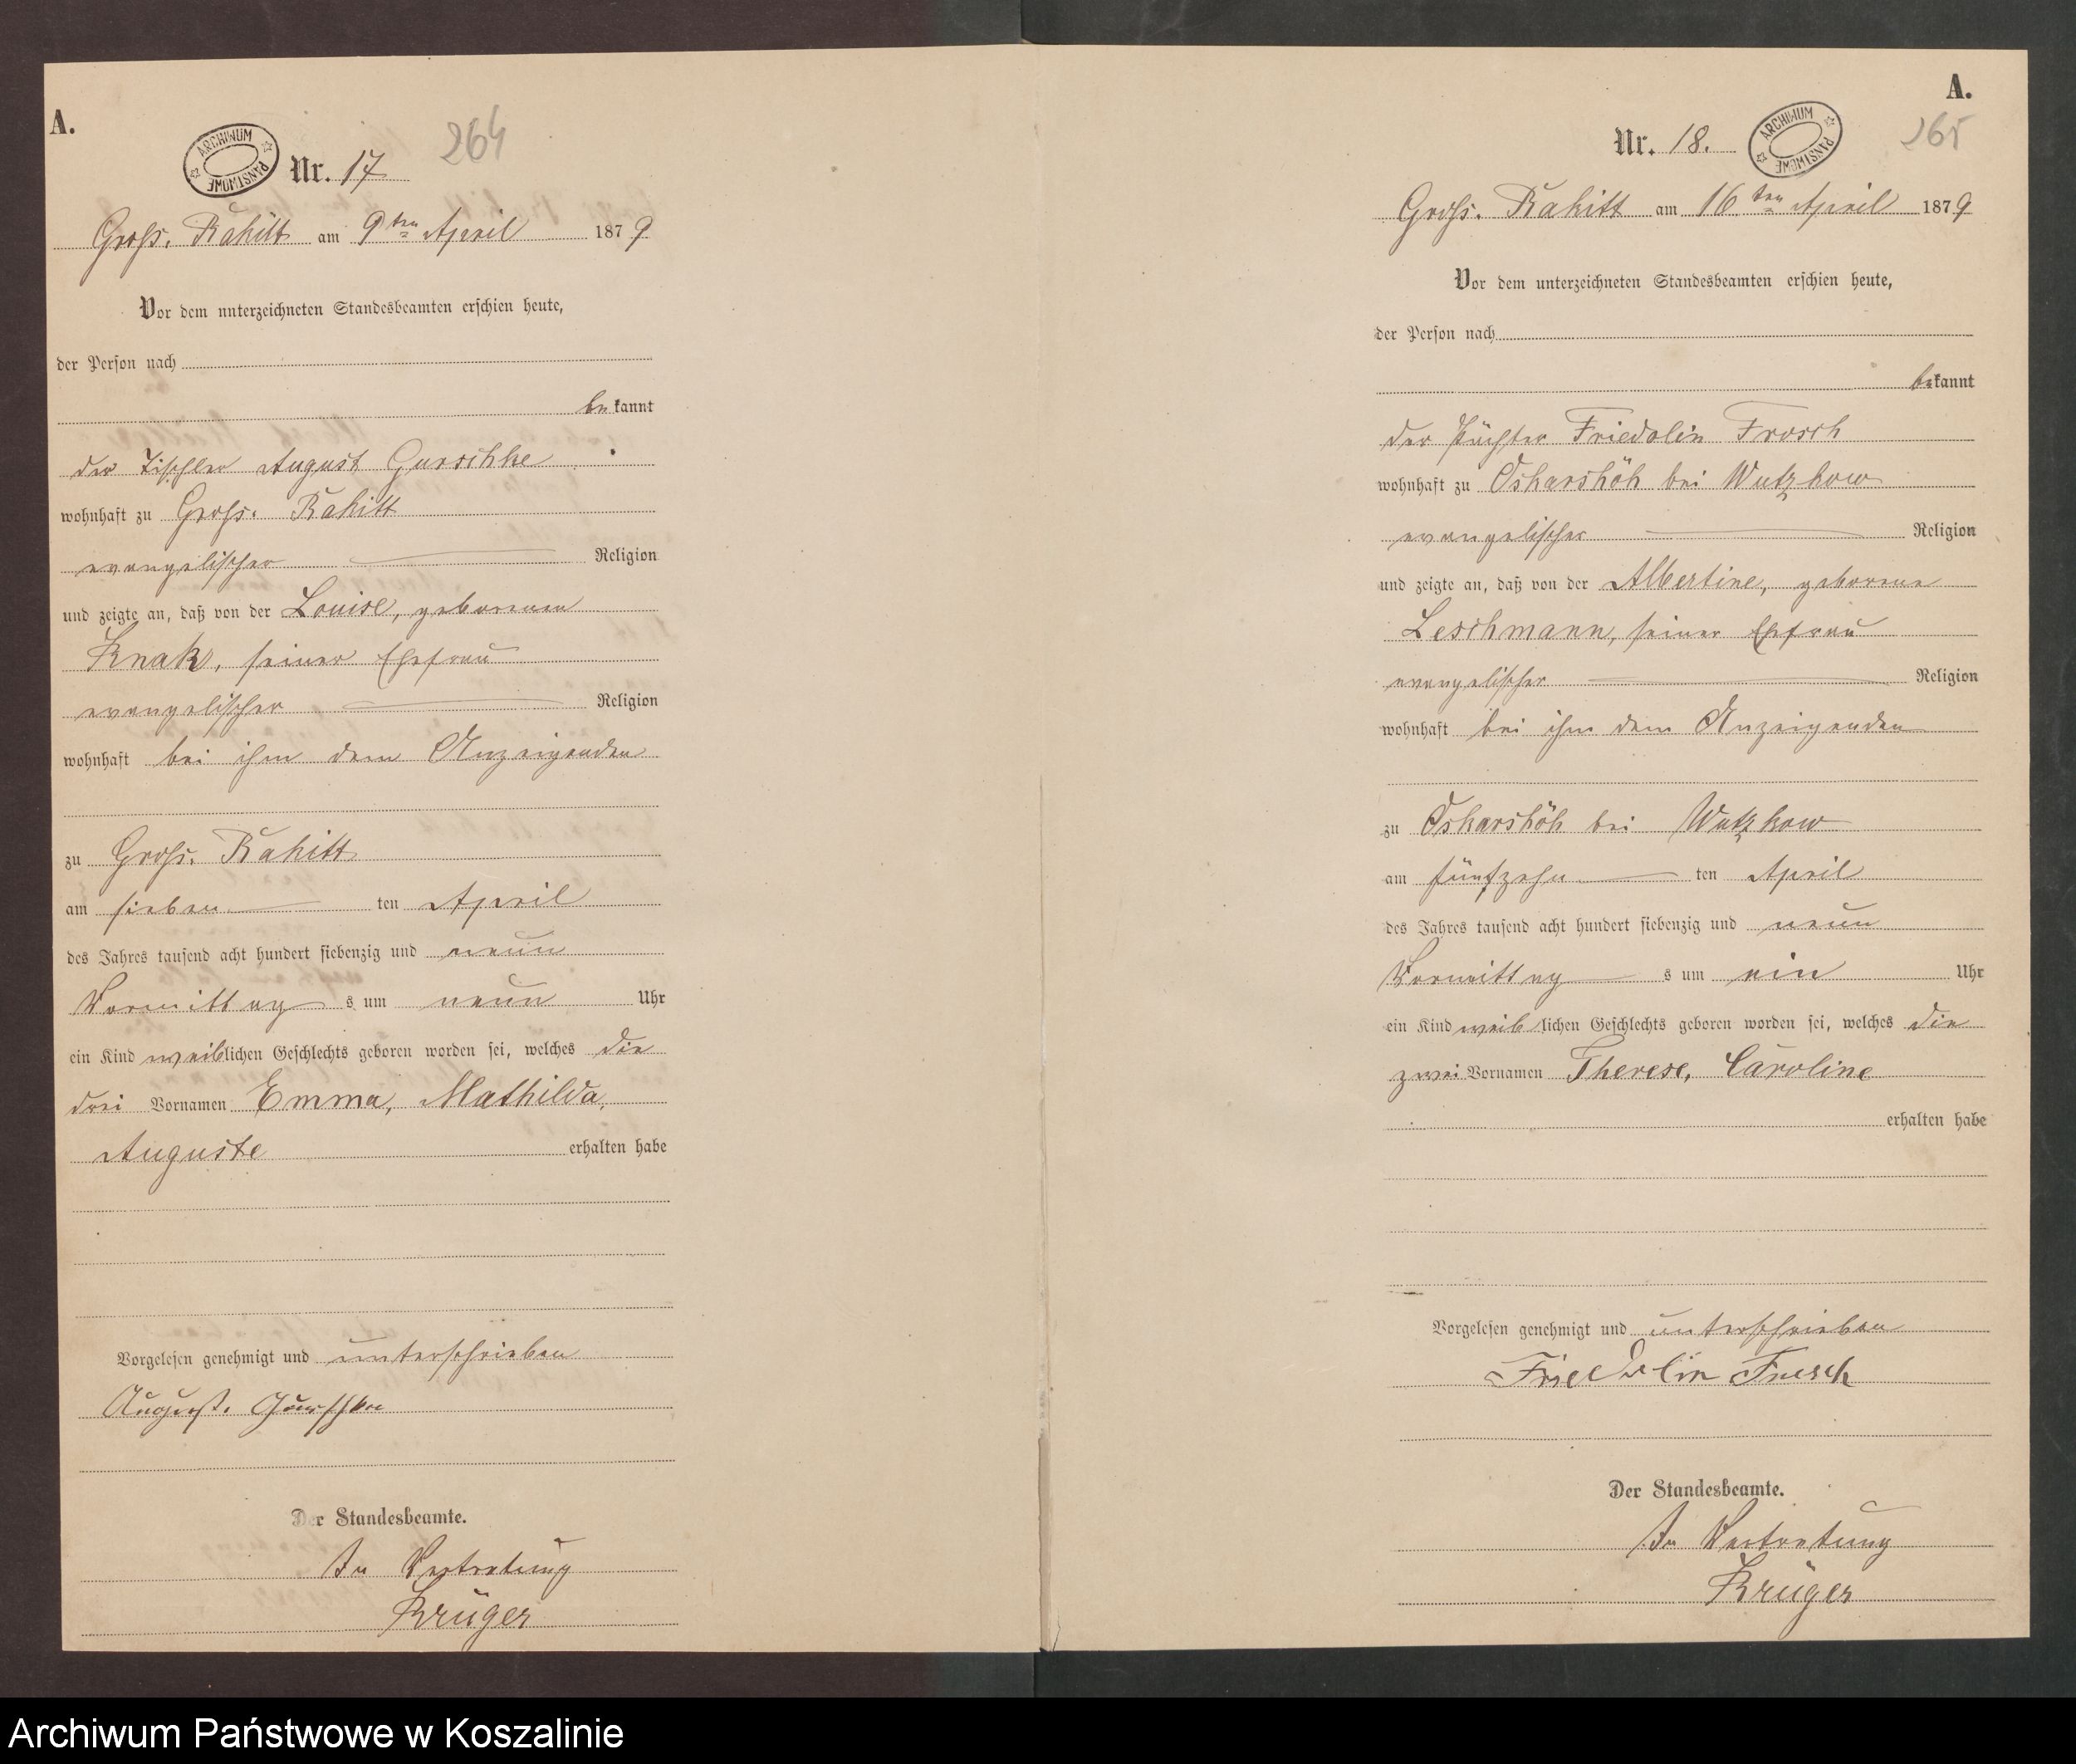 A.
ARCHIWUM PAŃSTWOWE
Nr. 17
264
Groß. Rakitt am 9ten April 1879
Vor dem unterzeichneten Standesbeamten erschien heute,
der Person nach
bekannt
der Tischler August Gurschke
wohnhaft zu Groß. Rakitt
evangelischer Religion
und zeigte an, daß von der Louise, geborenen
Knak, seiner Ehefrau
evangelischer Religion
wohnhaft bei ihm dem Anzeigenden
zu Groß. Rakitt
am sieben ten April
des Jahres tausend acht hundert siebenzig und neun
Vormittag s um neun Uhr
ein Kind weiblichen Geschlechts geboren worden sei, welches die
drei Vornamen Emma, Mathilda,
Auguste erhalten habe
Vorgelesen genehmigt und unterschrieben
August. Gurschke
Der Standesbeamte.
In Vertretung
Krüger
A.
Nr. 18.
ARCHIWUM PAŃSTWOWE
265
Groß. Rakitt am 16ten April 1879
Vor dem unterzeichneten Standesbeamten erschien heute,
der Person nach
bekannt
der Pächter Friedolin Frosch
wohnhaft zu Oskarshöh bei Wutzkow
evangelischer Religion
und zeigte an, daß von der Albertine, geborene
Leschmann, seiner Ehefrau
evangelischer Religion
wohnhaft bei ihm dem Anzeigenden
zu Oskarshöh bei Wutzkow
am fünfzehn ten April
des Jahres tausend acht hundert siebenzig und neun
Vormittag s um ein Uhr
ein Kind weiblichen Geschlechts geboren worden sei, welches die
zwei Vornamen Therese, Caroline
erhalten habe
Vorgelesen genehmigt und unterschrieben
Friedolin Frosch
Der Standesbeamte.
In Vertretung
Krüger
Archiwum Państwowe w Koszalinie